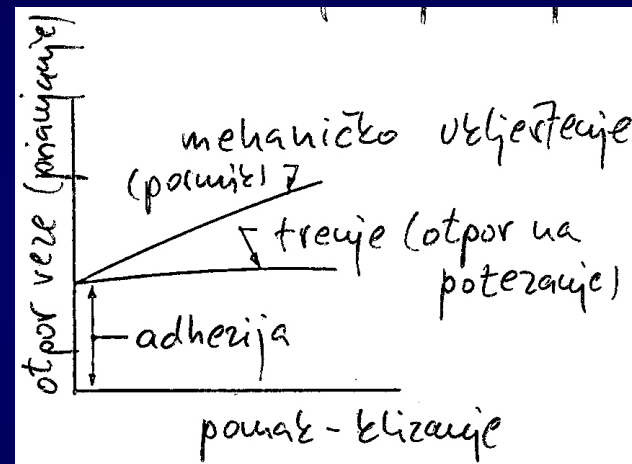 otpor veze (prianjanje)
mehaničko uklještenje
(posmik)
trenje (otpor na
potezanje)
adhezija
pomak - klizanje